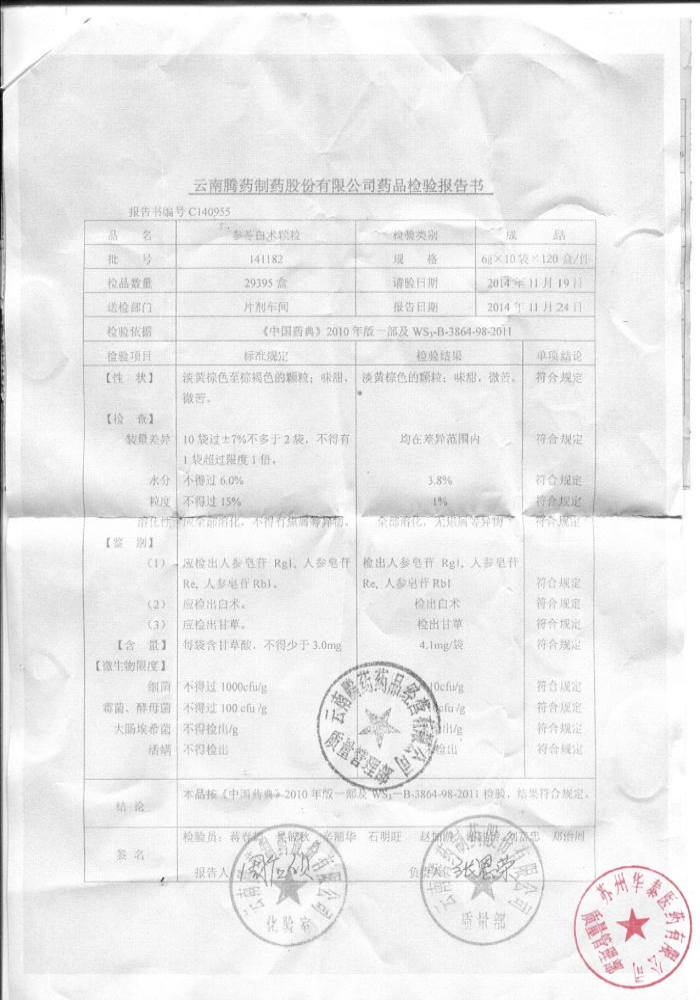 云南腾药制药股份有限公司药品检验报告书
报告书编号 C140955
品 名 参苓白术颗粒 检验类别 成 品
批 号 141182 规 格 6g×10袋×120盒/件
检品数量 29395 盒 请验日期 2014 年 11 月 19 日
送检部门 片剂车间 报告日期 2014 年 11 月 24 日
检验依据 《中国药典》2010 年版一部及 WS₃-B-3864-98-2011
检验项目 标准规定 检验结果 单项结论
【性 状】 淡黄棕色至棕褐色的颗粒；味甜、 淡黄棕色的颗粒；味甜，微苦。 符合规定
微苦。
【检 查】
装量差异 10 袋过±7%不多于 2 袋，不得有 均在差异范围内 符合规定
1 袋超过限度 1 倍。
水分 不得过 6.0% 3.8% 符合规定
粒度 不得过 15% 1% 符合规定
溶化性 应全部溶化，不得有焦屑等异物。 全部溶化，无焦屑等异物 符合规定
【鉴 别】
（1） 应检出人参皂苷 Rg1, 人参皂苷 检出人参皂苷 Rg1, 人参皂苷
Re, 人参皂苷 Rb1。 Re, 人参皂苷 Rb1 符合规定
（2） 应检出白术。 检出白术 符合规定
（3） 应检出甘草。 检出甘草 符合规定
【含 量】 每袋含甘草酸，不得少于 3.0mg 4.1mg/袋 符合规定
【微生物限度】
细菌 不得过 1000cfu/g 10cfu/g 符合规定
霉菌、酵母菌 不得过 100 cfu/g cfu/g 符合规定
大肠埃希菌 不得检出/g 出/g 符合规定
活螨 不得检出 检出 符合规定
结 论 本品按《中国药典》2010 年版一部及 WS₃—B-3864-98-2011 检验，结果符合规定。
签 名 检验员： 石明旺
报告人 负责人
云南腾药药品经营有限公司
质量管理部
云南腾药制药股份有限公司
化验室
云南腾药制药股份有限公司
质量部
苏州华泰医药有限公司
质量管理部